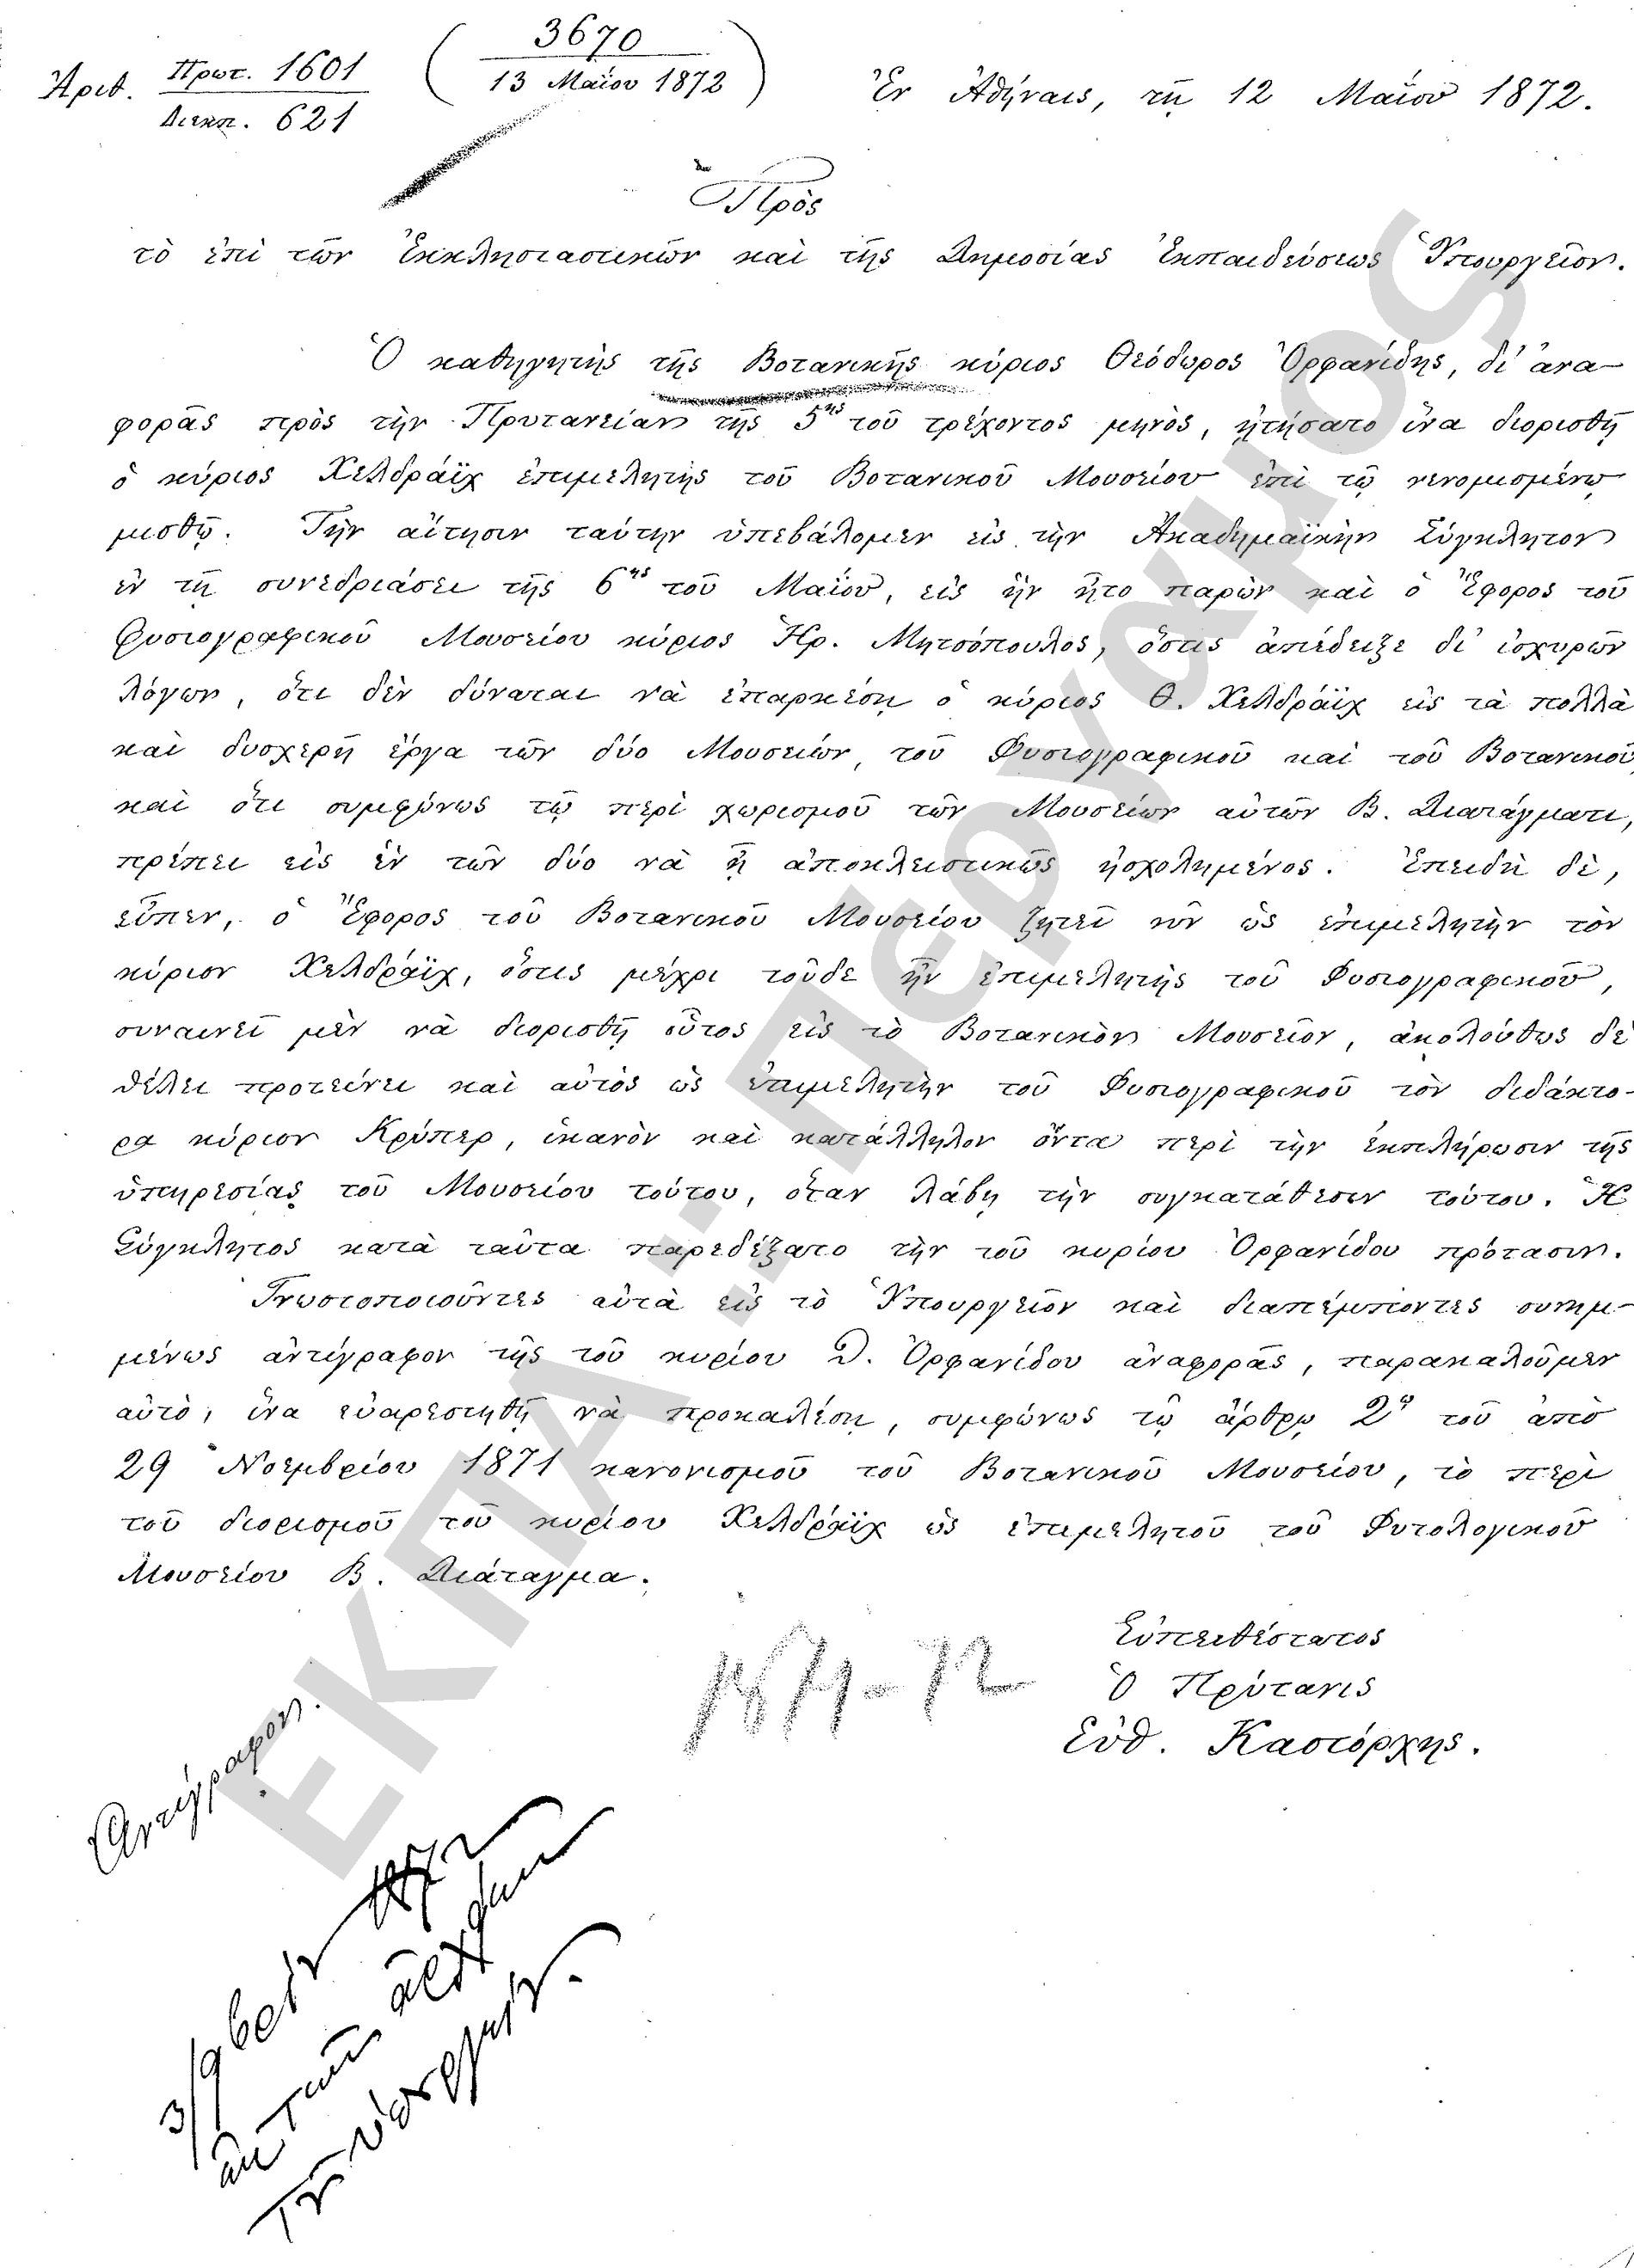 Ἀριθ. Πρωτ. 1601
Διεκπ. 621
( 3670
13 Μαΐου 1872 )
Ἐν Ἀθήναις, τῇ 12 Μαΐου 1872.
Πρὸς
τὸ ἐπὶ τῶν Ἐκκλησιαστικῶν καὶ τῆς Δημοσίας Ἐκπαιδεύσεως Ὑπουργεῖον.
Ὁ καθηγητὴς τῆς Βοτανικῆς κύριος Θεόδωρος Ὀρφανίδης, δι' ἀνα-
φορᾶς πρὸς τὴν Πρυτανείαν τῆς 5ης τοῦ τρέχοντος μηνὸς, ᾐτήσατο ἵνα διορισθῇ
ὁ κύριος Χελδράϊχ ἐπιμελητὴς τοῦ Βοτανικοῦ Μουσείου ἐπὶ τῷ νενομισμένῳ
μισθῷ. Τὴν αἴτησιν ταύτην ὑπεβάλομεν εἰς τὴν Ἀκαδημαϊκὴν Σύγκλητον
ἐν τῇ συνεδριάσει τῆς 6ης τοῦ Μαΐου, εἰς ἣν ἦτο παρὼν καὶ ὁ Ἔφορος τοῦ
Φυσιογραφικοῦ Μουσείου κύριος Ἡρ. Μητσόπουλος, ὅστις ἀπέδειξε δι' ἰσχυρῶν
λόγων, ὅτι δὲν δύναται νὰ ἐπαρκέσῃ ὁ κύριος Θ. Χελδράϊχ εἰς τὰ πολλὰ
καὶ δυσχερῆ ἔργα τῶν δύο Μουσείων, τοῦ Φυσιογραφικοῦ καὶ τοῦ Βοτανικοῦ,
καὶ ὅτι συμφώνως τῷ περὶ χωρισμοῦ τῶν Μουσείων αὐτῶν Β. Διατάγματι,
πρέπει εἰς ἓν τῶν δύο νὰ ᾖ ἀποκλειστικῶς ἠσχολημένος. Ἐπειδὴ δὲ,
εἶπεν, ὁ Ἔφορος τοῦ Βοτανικοῦ Μουσείου ζητεῖ νῦν ὡς ἐπιμελητὴν τὸν
κύριον Χελδράϊχ, ὅστις μέχρι τοῦδε ἦν ἐπιμελητὴς τοῦ Φυσιογραφικοῦ,
συναινεῖ μὲν νὰ διορισθῇ οὗτος εἰς τὸ Βοτανικὸν Μουσεῖον, ἀκολούθως δὲ
θέλει προτείνει καὶ αὐτὸς ὡς ἐπιμελητὴν τοῦ Φυσιογραφικοῦ τὸν διδάκτο-
ρα κύριον Κρύπερ, ἱκανὸν καὶ κατάλληλον ὄντα περὶ τὴν ἐκπλήρωσιν τῆς
ὑπηρεσίας τοῦ Μουσείου τούτου, ὅταν λάβῃ τὴν συγκατάθεσιν τούτου. Ἡ
Σύγκλητος κατὰ ταῦτα παρεδέξατο τὴν τοῦ κυρίου Ὀρφανίδου πρότασιν.
Γνωστοποιοῦντες αὐτὰ εἰς τὸ Ὑπουργεῖον καὶ διαπέμποντες συνημ-
μένως ἀντίγραφον τῆς τοῦ κυρίου Θ. Ὀρφανίδου ἀναφορᾶς, παρακαλοῦμεν
αὐτὸ, ἵνα εὐαρεστηθῇ νὰ προκαλέσῃ, συμφώνως τῷ ἄρθρῳ 2ῳ τοῦ ἀπὸ
29 Νοεμβρίου 1871 κανονισμοῦ τοῦ Βοτανικοῦ Μουσείου, τὸ περὶ
τοῦ διορισμοῦ τοῦ κυρίου Χελδράϊχ ὡς ἐπιμελητοῦ τοῦ Φυτολογικοῦ
Μουσείου Β. Διάταγμα.
Εὐπειθέστατος
Ὁ Πρύτανις
Εὐθ. Καστόρχης.
1871-72
Ἀντίγραφον.
ΕΚΠΑ.: Περγαμος